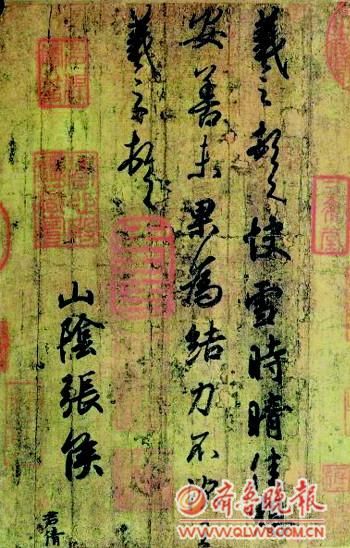 羲之頓首快雪時晴佳想
安善未果為結力不次王
羲之頓首
山陰張侯
君倩
齐鲁晚报
www.QLWB.COM.CN